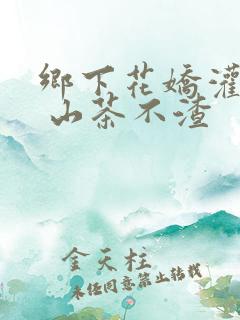 鄉下花嬌灌
山茶不渣
金天柱
未经同意禁止转载